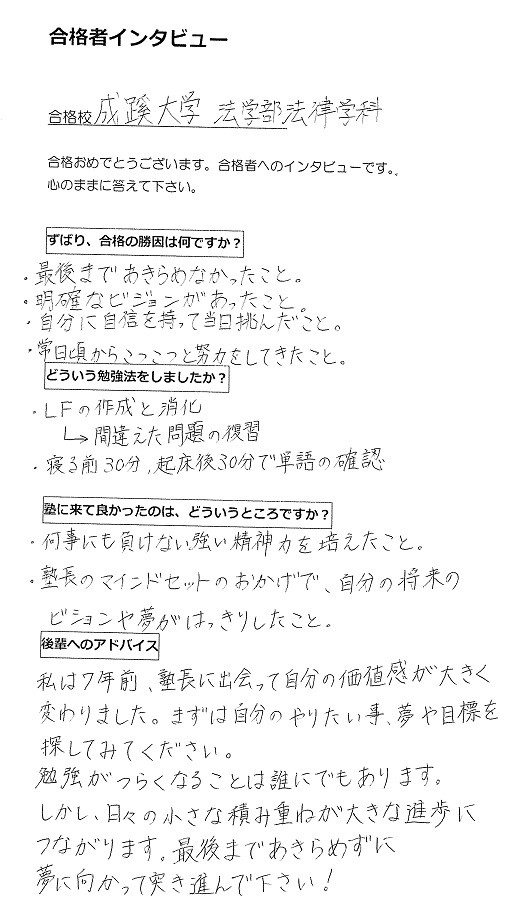 合格者インタビュー
合格校 成蹊大学 法学部法律学科
合格おめでとうございます。合格者へのインタビューです。
心のままに答えて下さい。
ずばり、合格の勝因は何ですか？
・最後まであきらめなかったこと。
・明確なビジョンがあったこと。
・自分に自信を持って当日挑んだこと。
・常日頃からこつこつと努力をしてきたこと。
どういう勉強法をしましたか？
・LFの作成と消化
↳間違えた問題の復習
・寝る前30分,起床後30分で単語の確認
塾に来て良かったのは、どういうところですか？
・何事にも負けない強い精神力を培えたこと。
・塾長のマインドセットのおかげで、自分の将来の
ビジョンや夢がはっきりしたこと。
後輩へのアドバイス
私は7年前、塾長に出会って自分の価値感が大きく
変わりました。まずは自分のやりたい事、夢や目標を
探してみてください。
勉強がつらくなることは誰にでもあります。
しかし、日々の小さな積み重ねが大きな進歩に
つながります。最後まであきらめずに
夢に向かって突き進んで下さい！